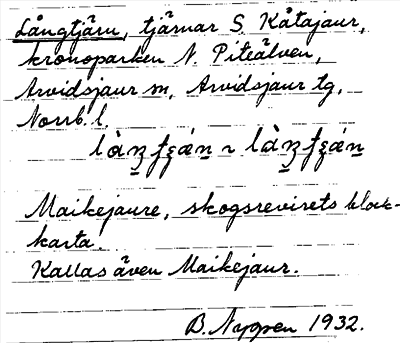 Långtjärn, tjärnar S. Kåtajaur,
kronoparken N. Piteälven,
Arvidsjaur sn, Arvidsjaur tg,
Norrb. l.
Maikejaure, skogsrevirets block-
karta.
Kallas även Maikejaur.
B. Nygren 1932.